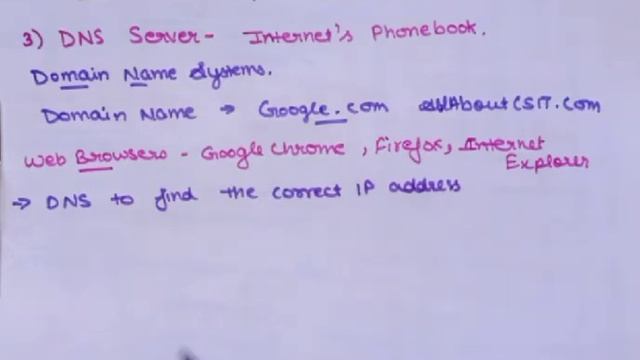 3) DNS Server - Internet's Phonebook.
Domain Name Systems.
Domain Name → Google.com AllAboutCSIT.com
Web Browsers - Google Chrome, Firefox, Internet Explorer
→ DNS to find the correct IP address